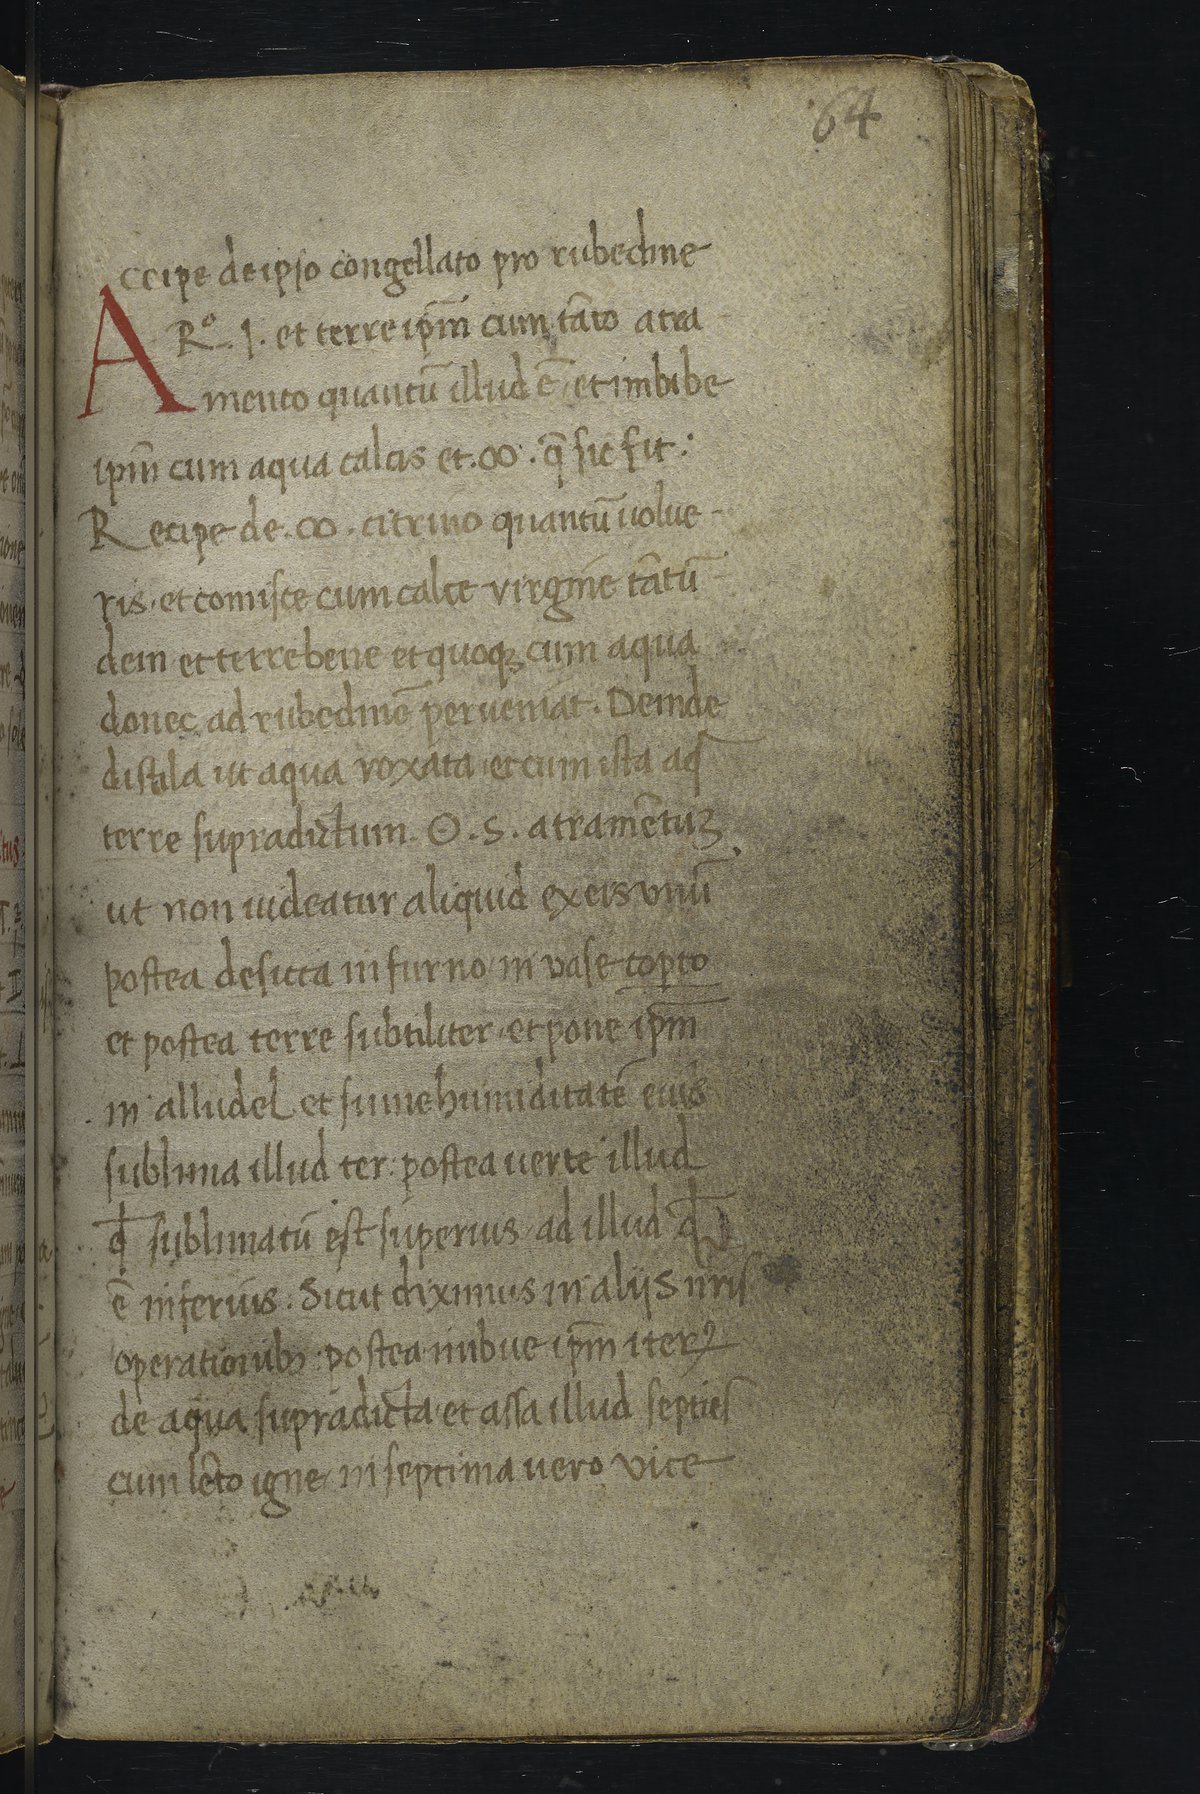 64
Accipe de ipso congellato pro rubedine
Rº. J. et terre ip̄m cum tāto atra
mento quantū illud ē et imbibe
ip̄m cum aqua calcis et . ꝏ . q̄ sic fit :
Recipe de . ꝏ . citrino quantū uolue-
ris et comisce cum calce virgine tātū
dem et terre bene et quoqꝫ cum aqua
donec ad rubedinē perueniat . Deinde
distila ut aqua roxata et cum ista aq̄
terre supradictum . ʘ . S . atramētuꝫ
ut non uideatur aliquid ex eis vnū
postea desicca in furno in vase coꝑto
et postea terre subtiliter et pone ip̄m
in alludel et sume humiditatē eius
sublima illud ter : postea uerte illud
qđ sublimatū est superius ad illud qđ
ē inferius . Sicut diximus in alijs nr̄is
operationibꝫ : postea imbue ip̄m iterꝰ
de aqua supradicta et assa illud septies
cum lēto igne in septima uero vice